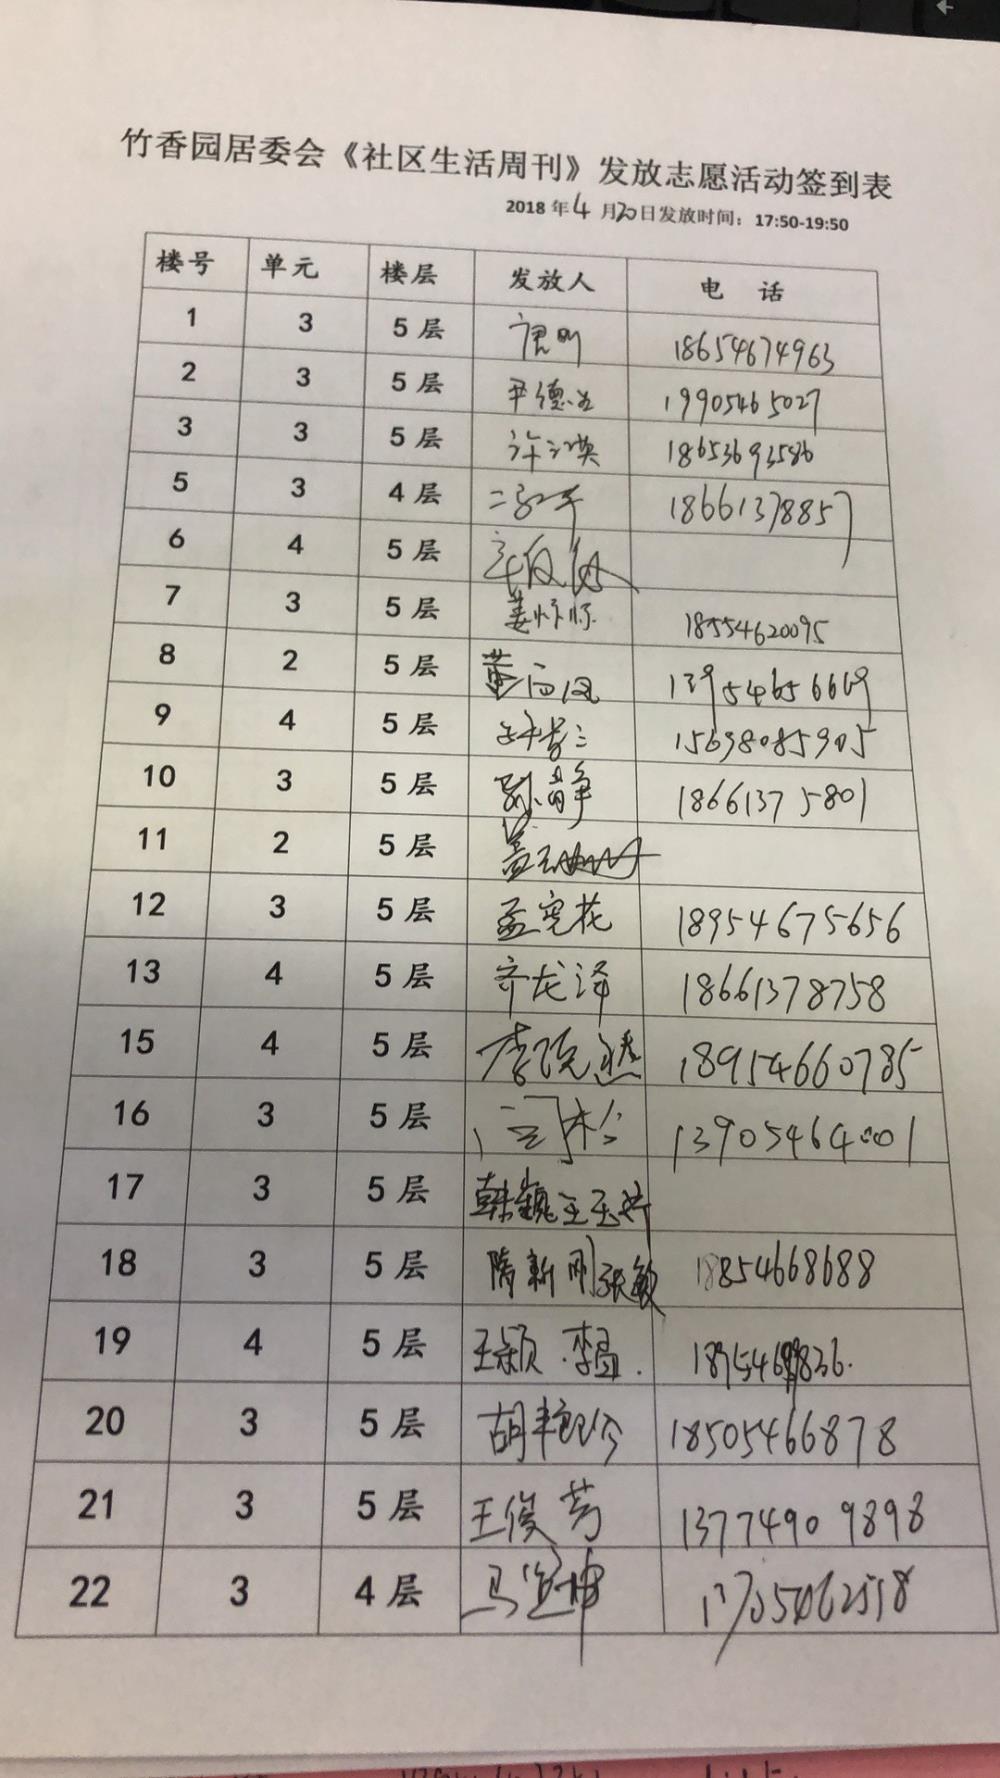 竹香园居委会《社区生活周刊》发放志愿活动签到表
2018 年 4 月 20 日发放时间：17:50-19:50
楼号 单元 楼层 发放人 电 话
1 3 5 层 18654674963
2 3 5 层 尹德 19905465027
3 3 5 层 许 瑛 18653693586
5 3 4 层 18661378857
6 4 5 层
7 3 5 层 姜 18554620095
8 2 5 层 董 13954656669
9 4 5 层 15698085905
10 3 5 层 孙静 18661375801
11 2 5 层
12 3 5 层 孟 花 18954675656
13 4 5 层 齐龙泽 18661378758
15 4 5 层 李 18954660785
16 3 5 层 闫松 13905464001
17 3 5 层 韩巍 王玉
18 3 5 层 隋新刚 张敏 18854668688
19 4 5 层 王颖·李
20 3 5 层 胡艳 18505466878
21 3 5 层 王俊芳 13774909898
22 3 4 层 马 坤